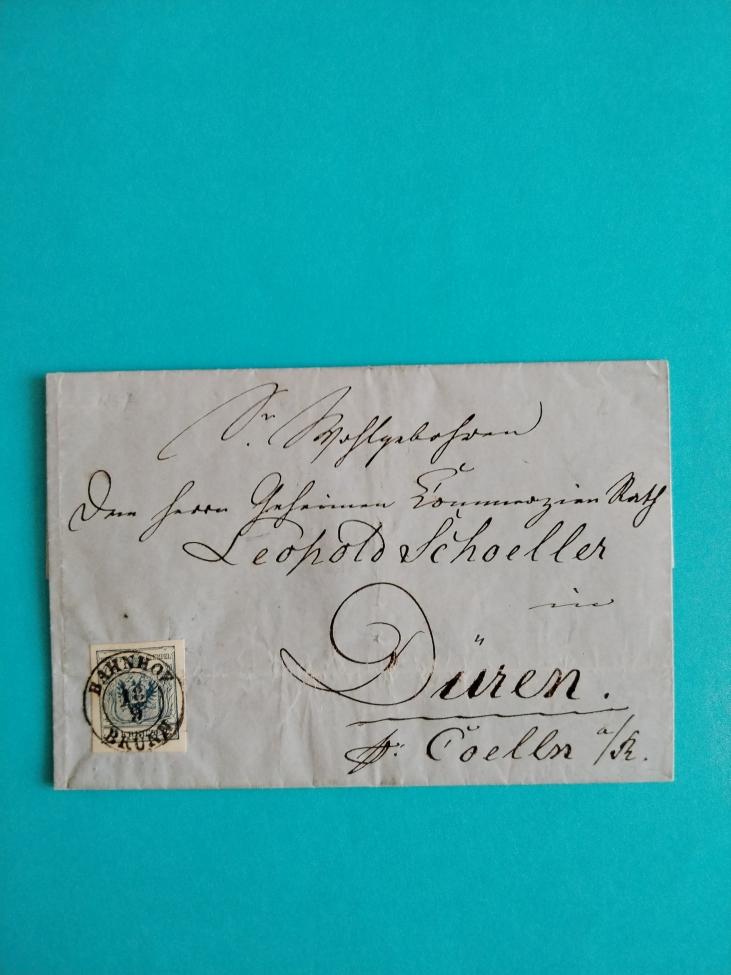 Sr. Wohlgebohren
Dem Herrn Geheimen Commerzien Rath
Leopold Schoeller
in
Düren.
pr: Coelln a/R.
BAHNHOF
18
9
BRÜNN